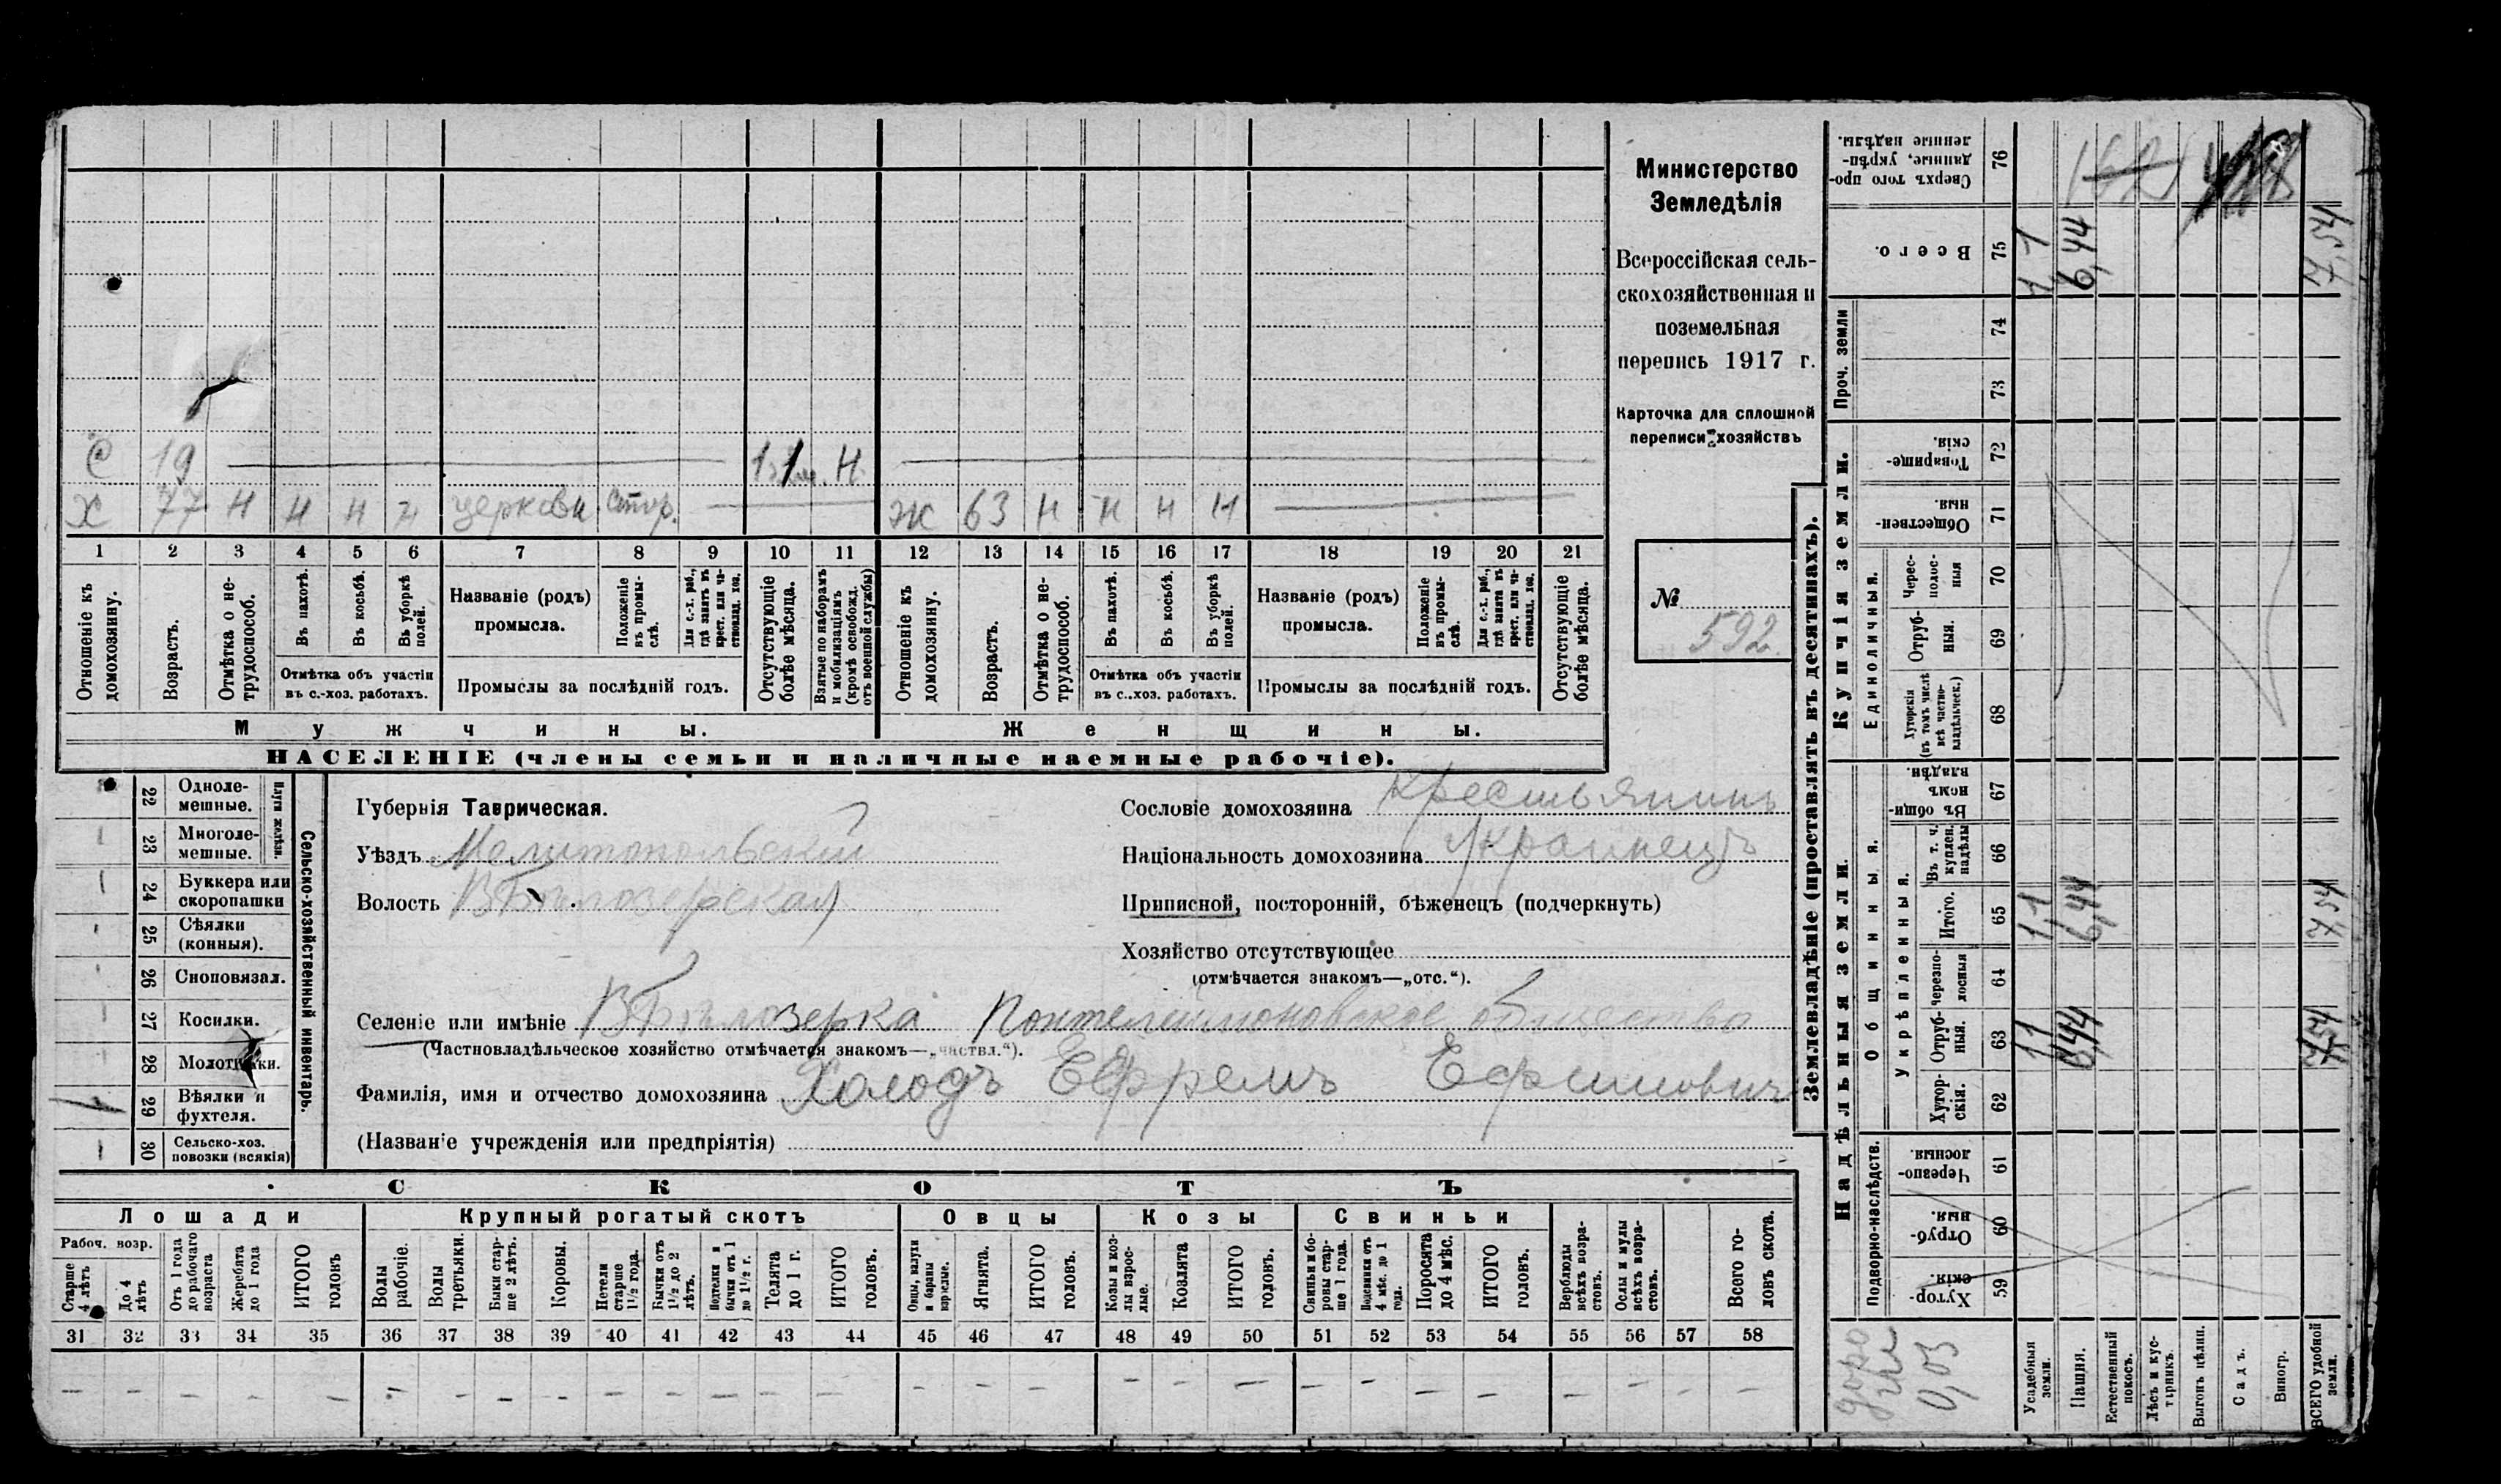 С 19 1 Н
Х 77 Н Н Н Н церковн. стор. Ж 63 Н Н Н Н
1 2 3 4 5 6 7 8 9 10 11 12 13 14 15 16 17 18 19 20 21
Отношеніе къ домохозяину.
Возрастъ.
Отмѣтка о нетрудоспособ.
Въ пахотѣ.
Въ косьбѣ.
Въ уборкѣ полей.
Отмѣтка объ участіи
въ с.-хоз. работахъ.
Названіе (родъ)
промысла.
Положеніе въ промыслѣ.
Для с.-х. раб., гдѣ занятъ въ крест. или частновлад. хоз.
Промыслы за послѣдній годъ.
Отсутствующіе болѣе мѣсяца.
Взятые по наборамъ и мобилизаціямъ (кромѣ освобожд. отъ военной службы)
Отношеніе къ домохозяину.
Возрастъ.
Отмѣтка о нетрудоспособ.
Въ пахотѣ.
Въ косьбѣ.
Въ уборкѣ полей.
Отмѣтка объ участіи
въ с.-хоз. работахъ.
Названіе (родъ)
промысла.
Положеніе въ промыслѣ.
Для с.-х. раб., гдѣ занята въ крест. или частновлад. хоз.
Промыслы за послѣдній годъ.
Отсутствующіе болѣе мѣсяца.
Мужчины. Женщины.
НАСЕЛЕНІЕ (члены семьи и наличные наемные рабочіе).
Министерство
Земледѣлія
Всероссійская сель-
скохозяйственная и
поземельная
перепись 1917 г.
Карточка для сплошной
переписи хозяйствъ
№
592
22 Одноле-
мешные.
23 Многоле-
мешные.
Плуги желѣзн.
24 Буккера или
скоропашки
25 Сѣялки
(конныя).
26 Сноповязал.
27 Косилки.
28 Молотилки.
29 Вѣялки и
фухтеля.
30 Сельско-хоз.
повозки (всякія)
Сельско-хозяйственный инвентарь.
Губернія Таврическая.
Уѣздъ Мелитопольскій
Волость В Бѣлозерская
Сословіе домохозяина крестьянинъ
Національность домохозяина Украинецъ
Приписной, посторонній, бѣженецъ (подчеркнуть)
Хозяйство отсутствующее
(отмѣчается знакомъ—„отс.“).
Селеніе или имѣніе В Бѣлозерка Понтелеимоновское общество
(Частновладѣльческое хозяйство отмѣчается знакомъ—„частвл.“).
Фамилія, имя и отчество домохозяина Холодъ Ефремъ Ефимович
(Названіе учрежденія или предпріятія)
СКОТЪ
Лошади Крупный рогатый скотъ Овцы Козы Свиньи
Рабоч. возр.
Старше 4 лѣтъ
До 4 лѣтъ
Отъ 1 года до рабочаго возраста
Жеребята до 1 года
ИТОГО головъ
Волы рабочіе.
Волы третьяки.
Быки старше 2 лѣтъ.
Коровы.
Нетели старше 1½ года.
Бычки отъ 1½ до 2 лѣтъ.
Подтелки и бычки отъ 1 до 1½ г.
Телята до 1 г.
ИТОГО головъ.
Овцы, валухи и бараны взрослые.
Ягнята.
ИТОГО головъ.
Козы и козлы взрослые.
Козлята
ИТОГО головъ.
Свиньи и боровы старше 1 года.
Подсвинки отъ 4 мѣс. до 1 года.
Поросята до 4 мѣс.
ИТОГО головъ.
Верблюды всѣхъ возрастовъ.
Ослы и мулы всѣхъ возрастовъ.
Всего головъ скота.
31 32 33 34 35 36 37 38 39 40 41 42 43 44 45 46 47 48 49 50 51 52 53 54 55 56 57 58
Землевладѣніе (проставлять въ десятинахъ).
Надѣльныя земли.
Подворно-наслѣдств.
Хуторскія. 59
Отрубныя. 60
Черезполосныя. 61
Общинныя.
Укрѣпленныя.
Хуторскія. 62
Отрубныя. 63 1,1 6,44 7,54
Черезполосныя 64
Итого. 65 1,1 6,44 7,54
Въ т. ч. куплен. надѣлы 66
Въ общинномъ владѣн. 67
Купчія земли.
Единоличныя.
Хуторскія (въ томъ числѣ всѣ частновладѣльческ.) 68
Отрубныя. 69
Чересполосныя 70
Общественныя. 71
Товарищескія. 72
Проч. земли
73
74
Всего. 75 1,1 6,44 7,54
Сверхъ того проданные, укрѣпленные надѣлы. 76
0,03
Усадебныя земли.
Пашня.
Естественный покосъ.
Лѣсъ и кустарникъ.
Выгонъ цѣлин.
Садъ.
Виногр.
ВСЕГО удобной земли.